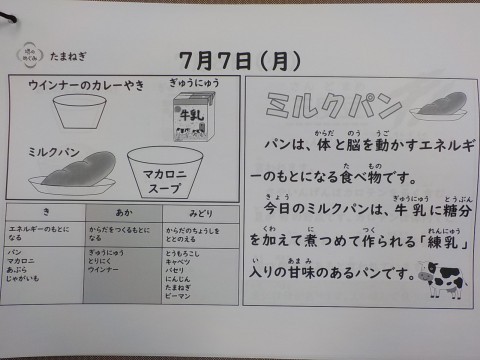 堺の
めぐみ
たまねぎ
7月7日(月)
ウインナーのカレーやき
ぎゅうにゅう
牛乳
ミルクパン
マカロニ
スープ
き
あか
みどり
エネルギーのもとに
なる
からだをつくるもとに
なる
からだのちょうしを
ととのえる
パン
マカロニ
あぶら
じゃがいも
ぎゅうにゅう
とりにく
ウインナー
とうもろこし
キャベツ
パセリ
にんじん
たまねぎ
ピーマン
ミルクパン
からだ のう うご
パンは、体と脳を動かすエネルギ
た もの
ーのもとになる食べ物です。
きょう ぎゅうにゅう とうぶん
今日のミルクパンは、牛乳に糖分
くわ に つく れんにゅう
を加えて煮つめて作られる「練乳」
い あまみ
入りの甘味のあるパンです。